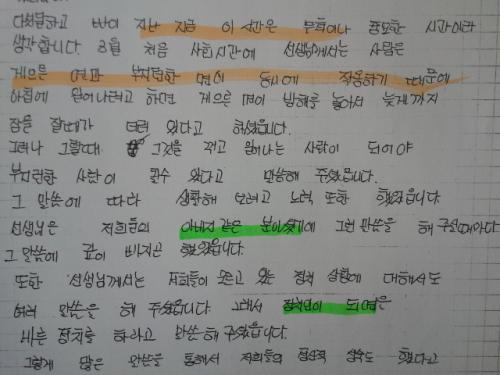 다졌답하고 봐이 지난 지금 이 시간은 무척이나 중요한 시간이라
생각합니다. 3월 처음 사회시간에 선생님께서는 사람은
게으른 면과 부지런한 면이 동시에 작용하기 때문에
아침에 일어나려고 하면 게으른 면이 방해를 놓아서 늦게까지
잠을 잘때가 더러 있다고 하셨습니다.
그러나 그럴때 그것을 꺽고 일어나는 사람이 되어야
부지런한 사람이 될수 있다고 말씀해 주셨습니다.
그 말씀에 따라 생활해 보려고 노력 또한 했었습니다.
선생님은 저희들의 아버지 같은 분이셨기에 그런 말씀을 해 주실때마다
그 말씀에 깊이 빠지곤 했었습니다.
또한 선생님께서는 저희들이 모르고 있는 정치 상황에 대해서도
여러 말씀을 해 주셨습니다 그래서 정치인이 되면은
바른 정치를 하라고 말씀해 주셨습니다.
그렇게 많은 말씀을 통해서 저희들의 정신적 성숙도 했다고